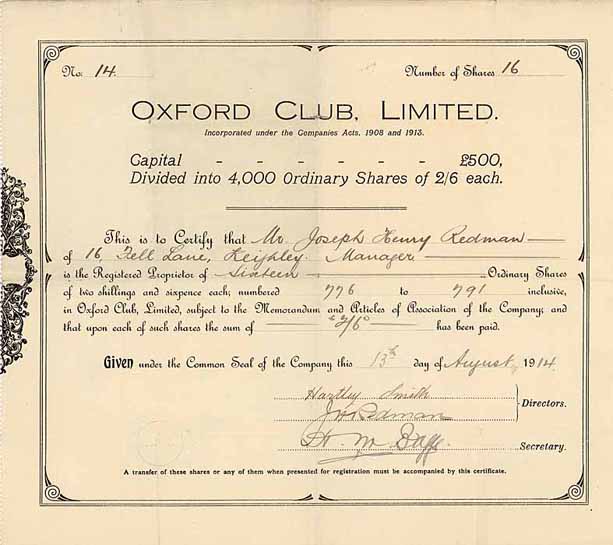 No. 14. Number of Shares 16
OXFORD CLUB, LIMITED.
Incorporated under the Companies Acts, 1908 and 1913.
Capital - - - - - - £500,
Divided into 4,000 Ordinary Shares of 2/6 each.
This is to Certify that Mr Joseph Henry Redman
of 16, Fell Lane, Keighley. Manager
is the Registered Proprietor of Sixteen Ordinary Shares
of two shillings and sixpence each, numbered 776 to 791 inclusive,
in Oxford Club, Limited, subject to the Memorandum and Articles of Association of the Company; and
that upon each of such shares the sum of 2/6 has been paid.
Given under the Common Seal of the Company this 13th day of August, 1914.
Hartley Smith
Redman
Directors.
H. M.
Secretary.
A transfer of these shares or any of them when presented for registration must be accompanied by this certificate.